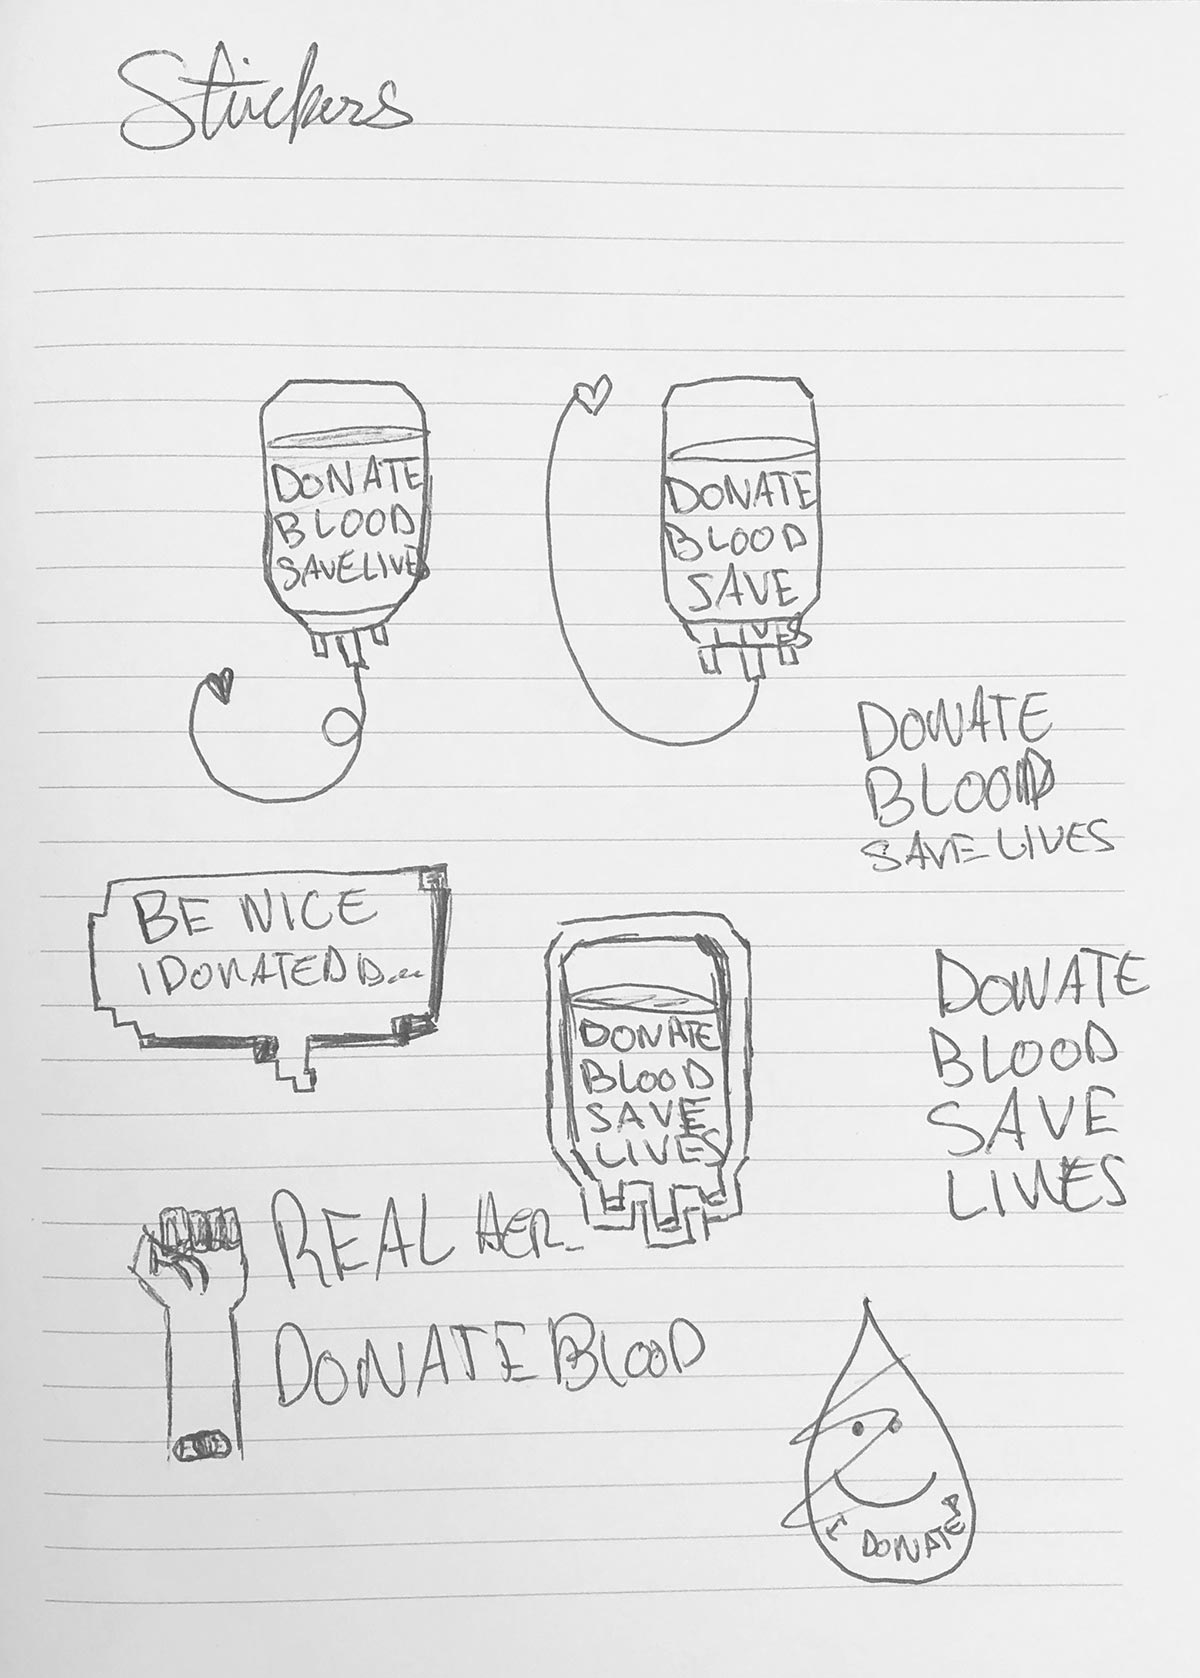 Stickers
DONATE
BLOOD
SAVE LIVES
DONATE
BLOOD
SAVE
LIVES
DONATE
BLOOD
SAVE LIVES
BE NICE
I DONATED B...
DONATE
BLOOD
SAVE
LIVES
DONATE
BLOOD
SAVE
LIVES
REAL HER_
DONATE BLOOD
I DONATED